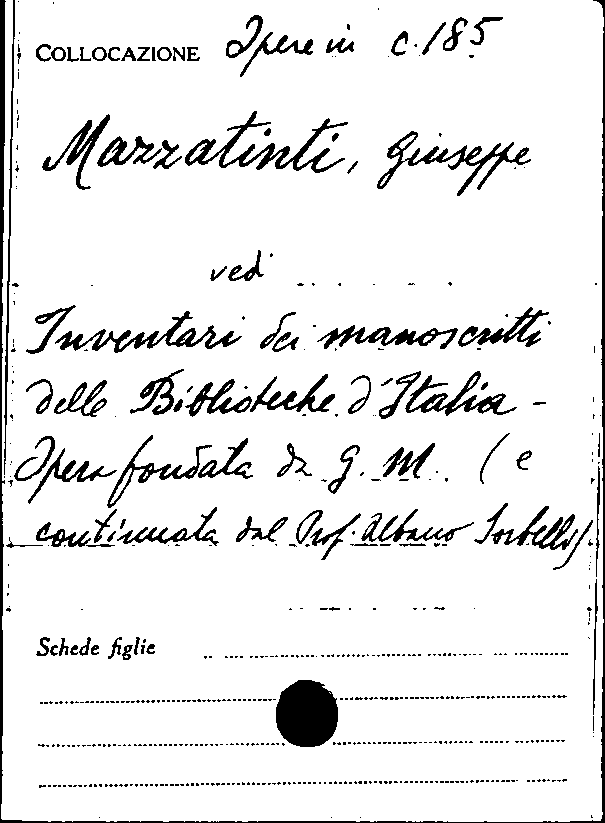 COLLOCAZIONE Opere in c. 185
Mazzatinti, Giuseppe
vedi
Inventari dei manoscritti
delle Biblioteche d'Italia -
Opera fondata da G. M. (e
continuata dal Prof. Albano Sorbelli)
Schede figlie